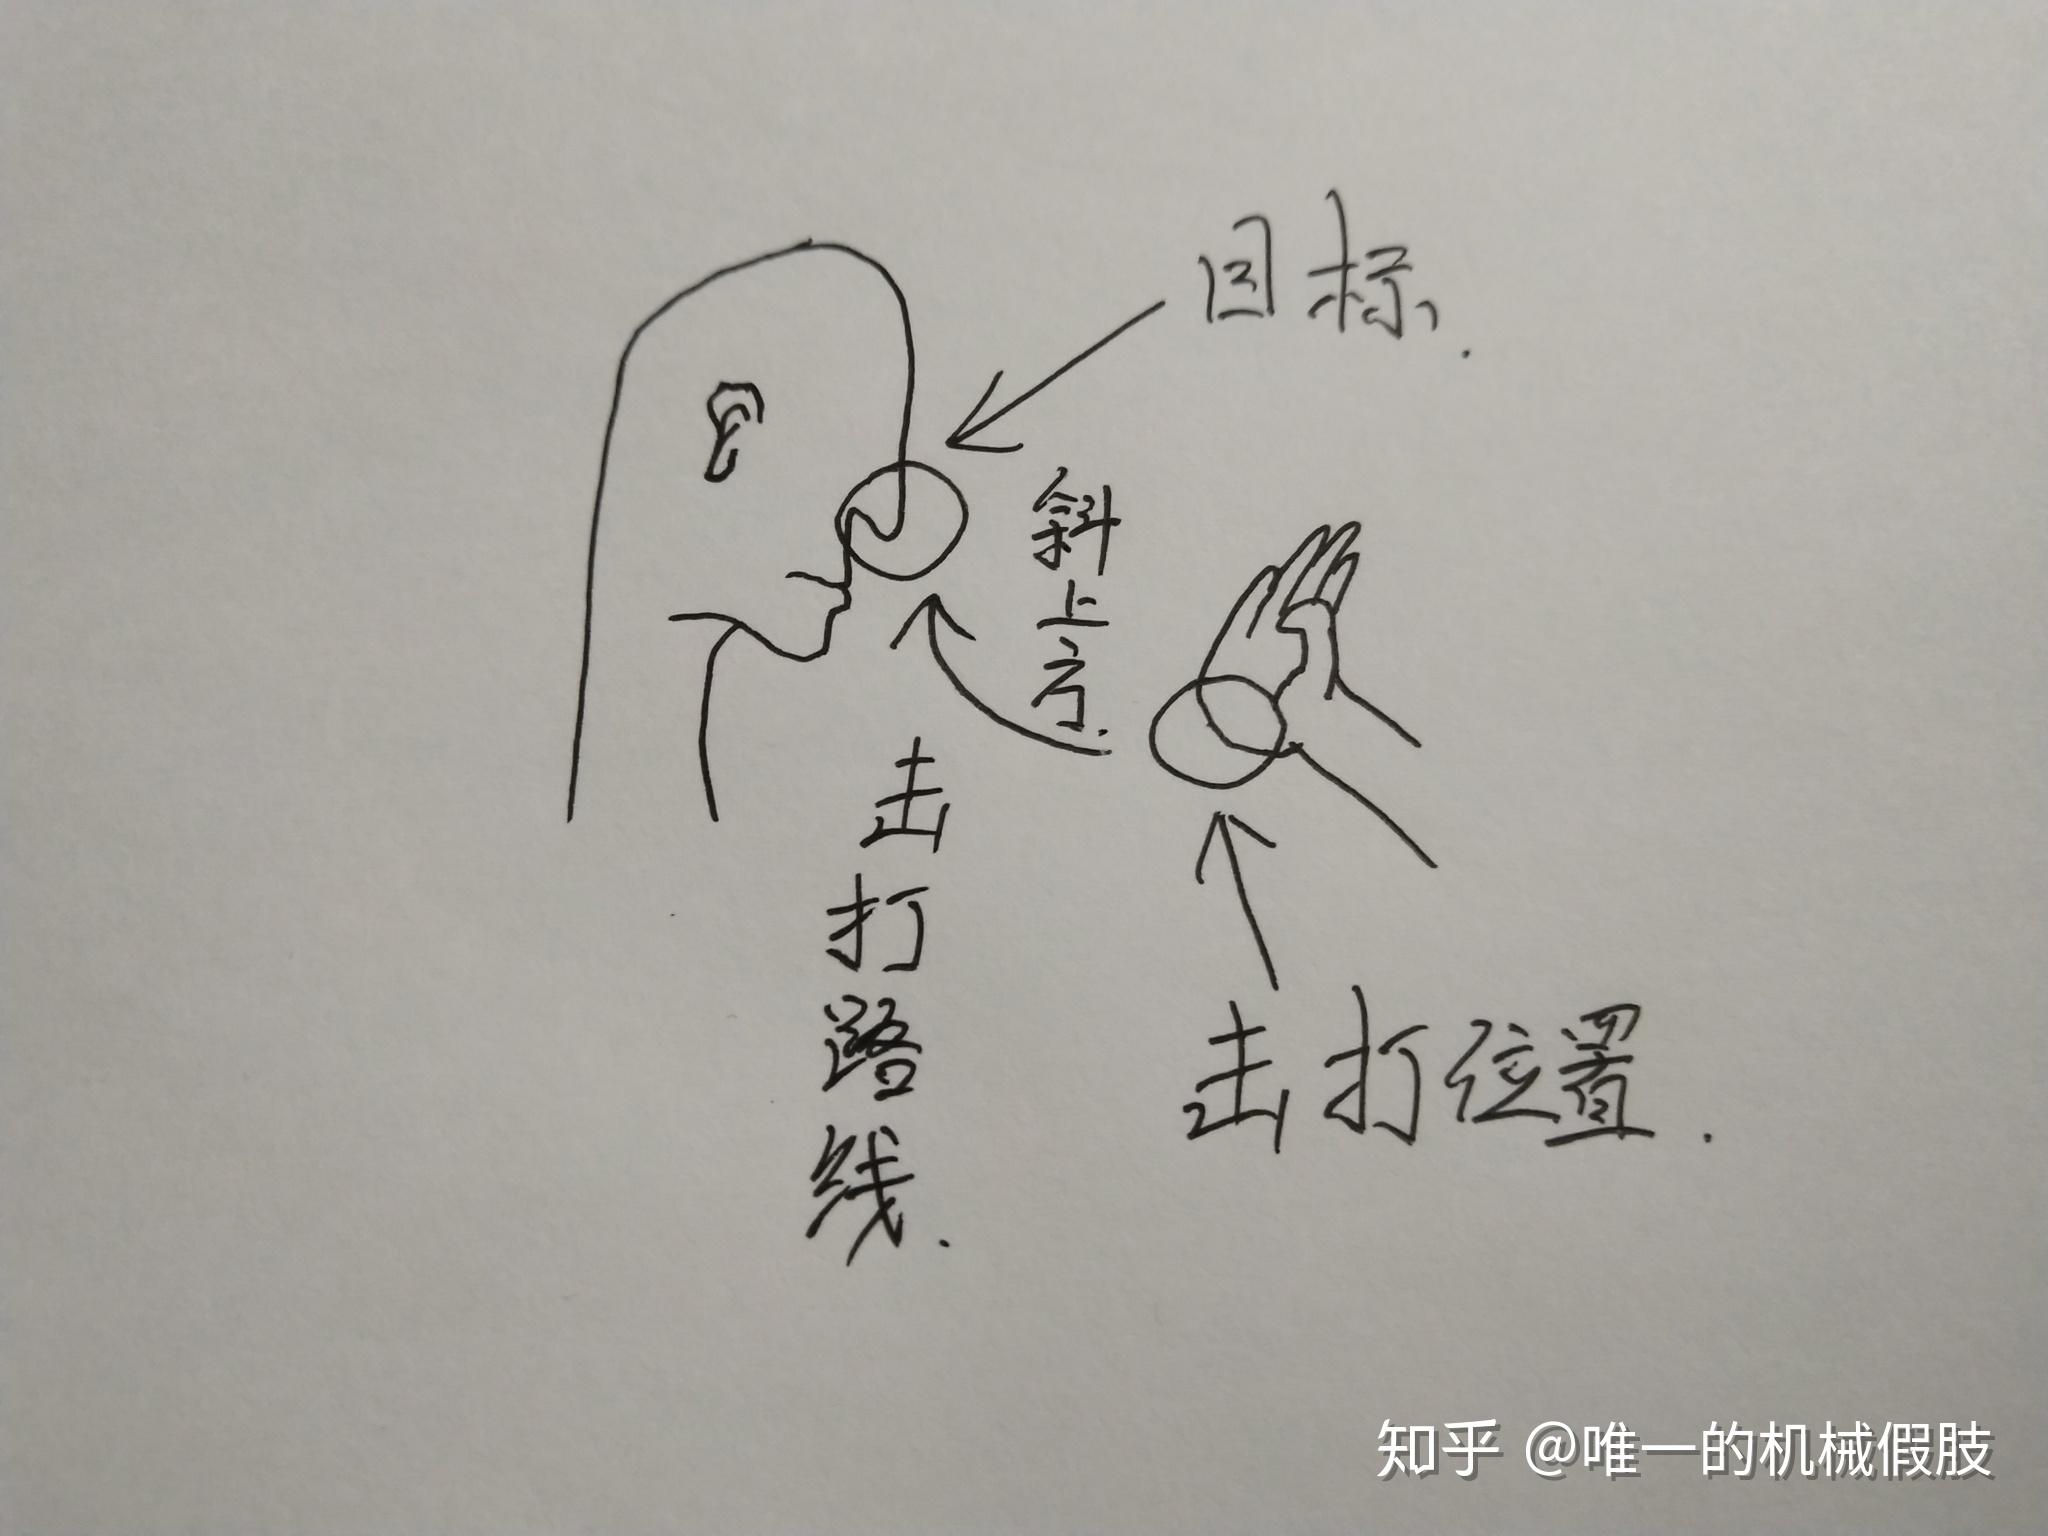 目标.
斜上方.
击打路线.
击打位置.
知乎 @唯一的机械假肢